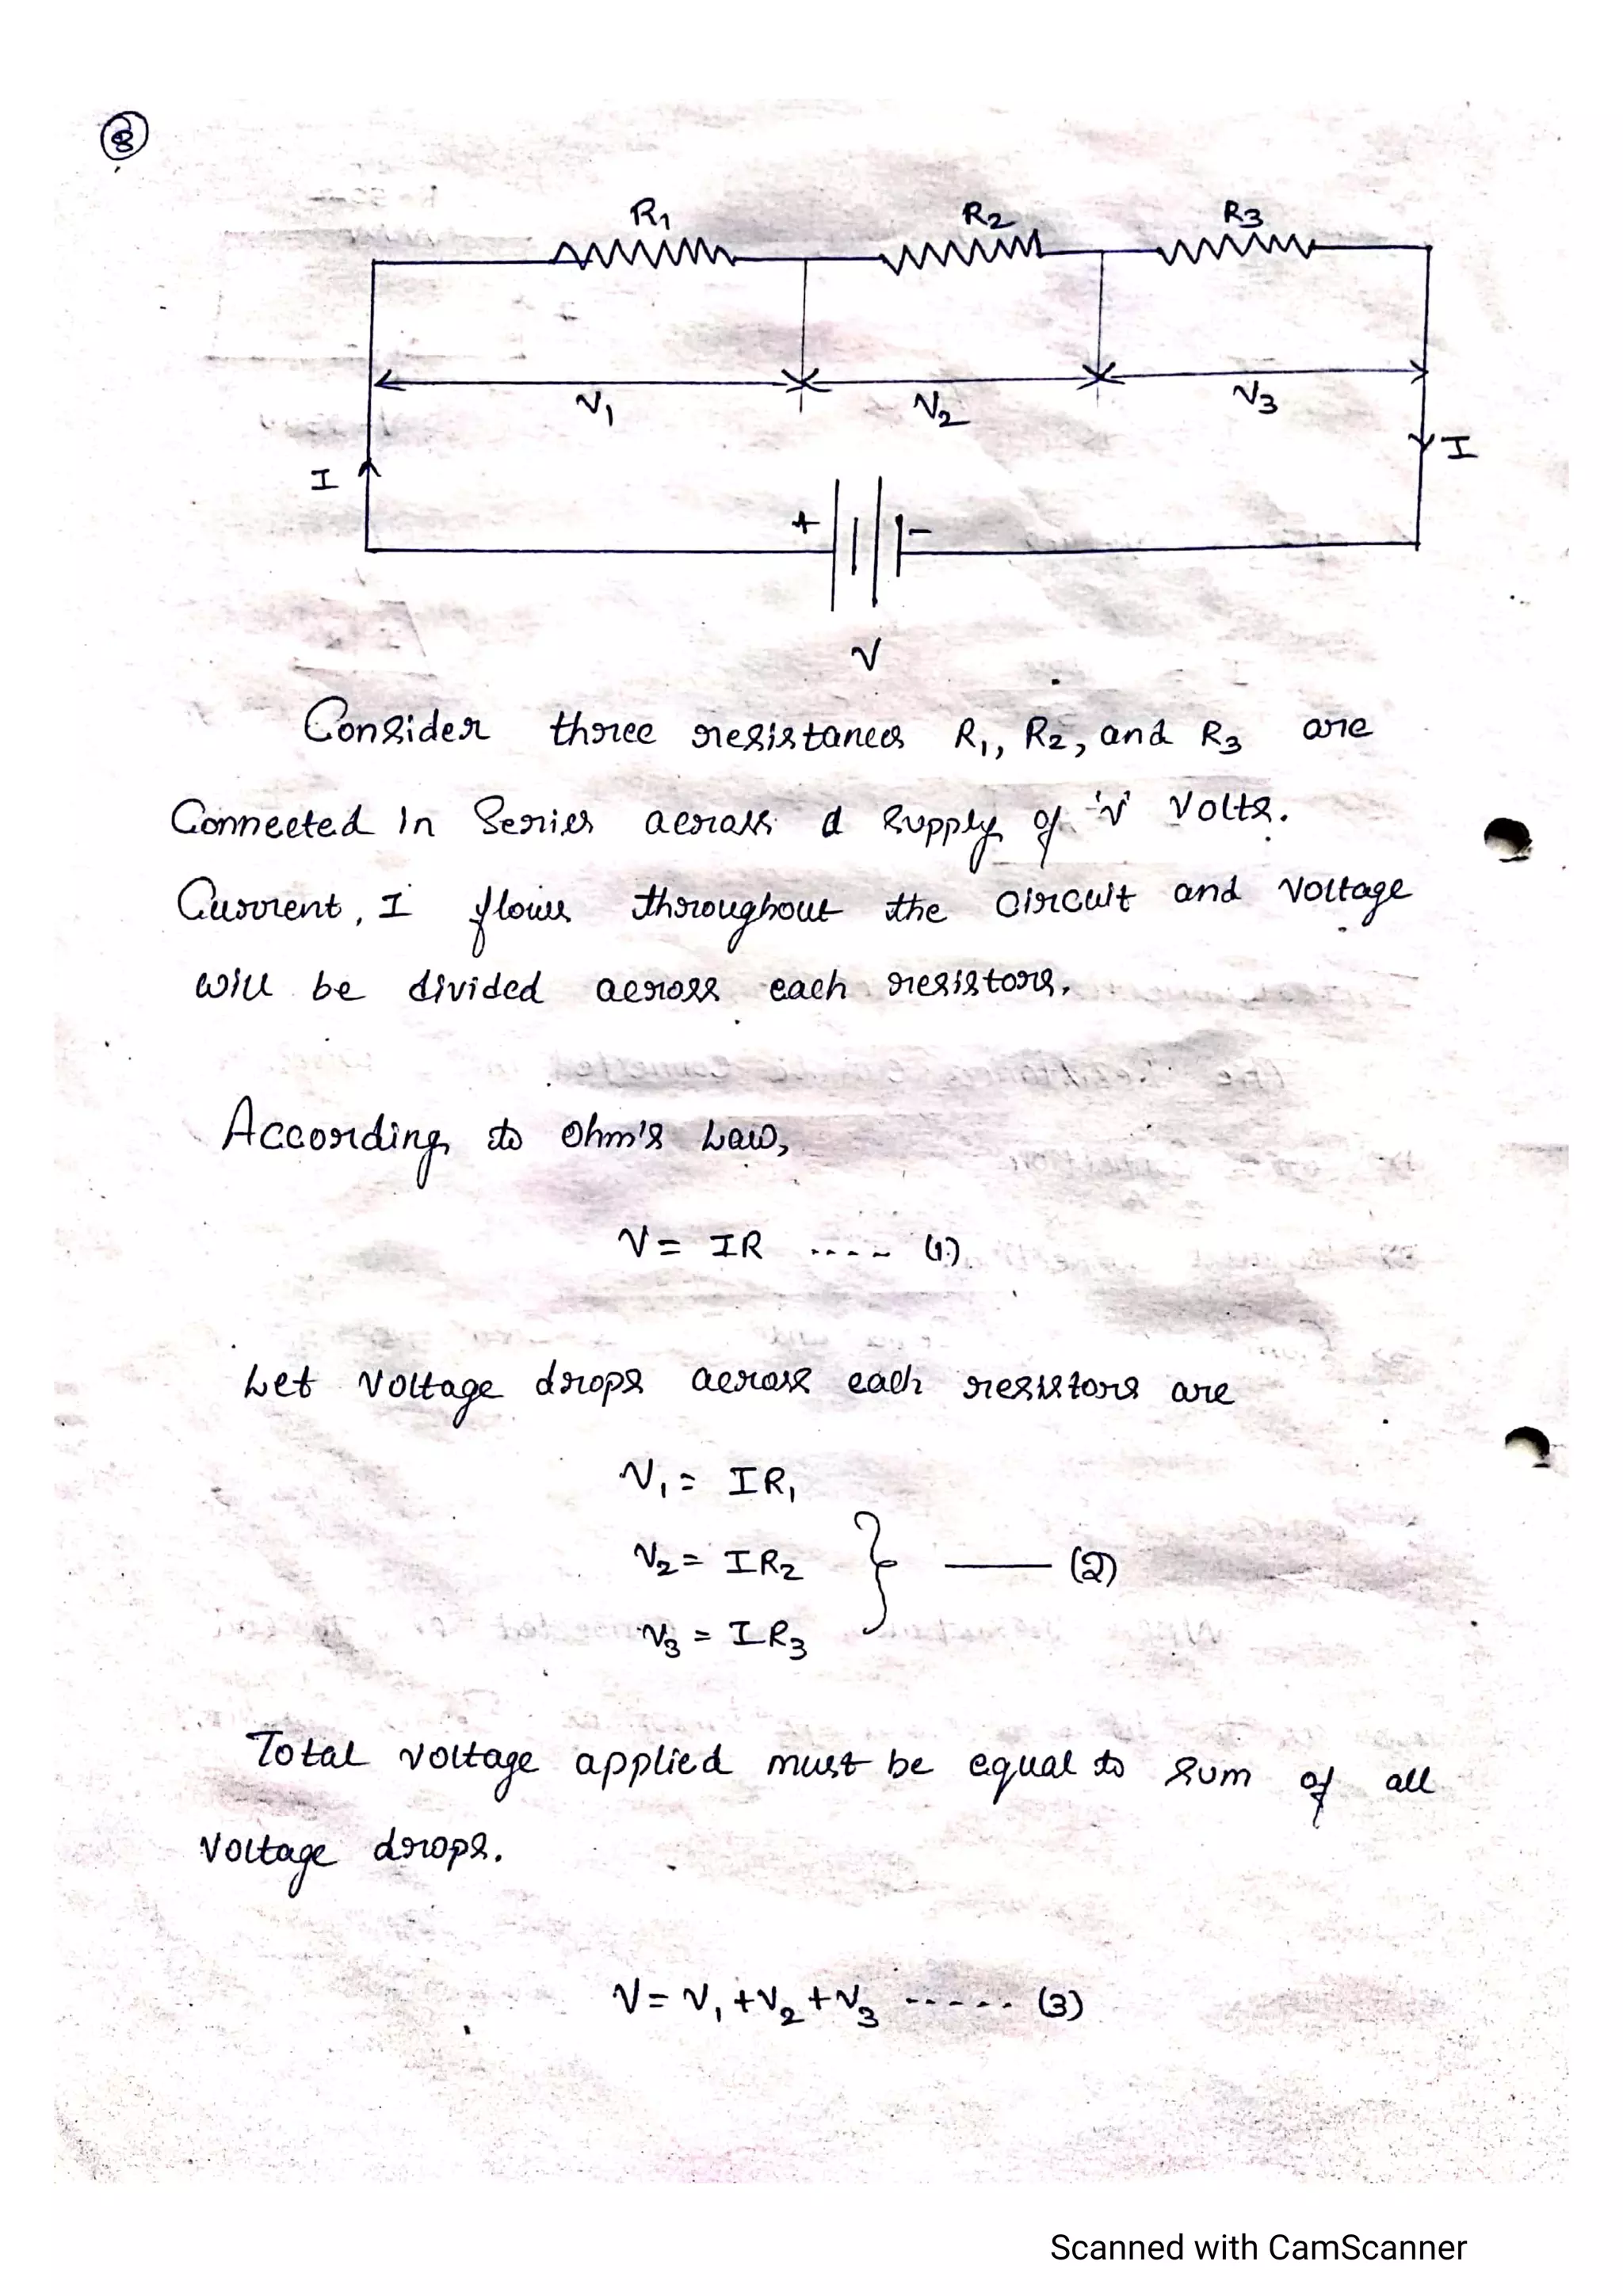 8
R1 R2 R3
V1 V2 V3
I I
+ -
V
Consider three resistances R1, R2, and R3 are
Connected in Series across a supply of 'V' Volts.
Current, I flows throughout the circuit and voltage
will be divided across each resistors.
According to Ohm's Law,
V = IR ---- (1)
Let voltage drops across each resistors are
V1 = IR1
V2 = IR2 } —— (2)
V3 = IR3
Total voltage applied must be equal to sum of all
voltage drops.
V = V1 + V2 + V3 ----- (3)
Scanned with CamScanner